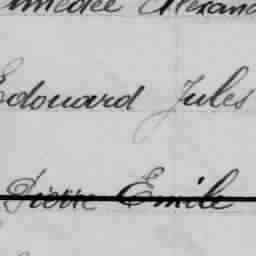 Amédée Alexand
Edouard Jules
Pierre Emile